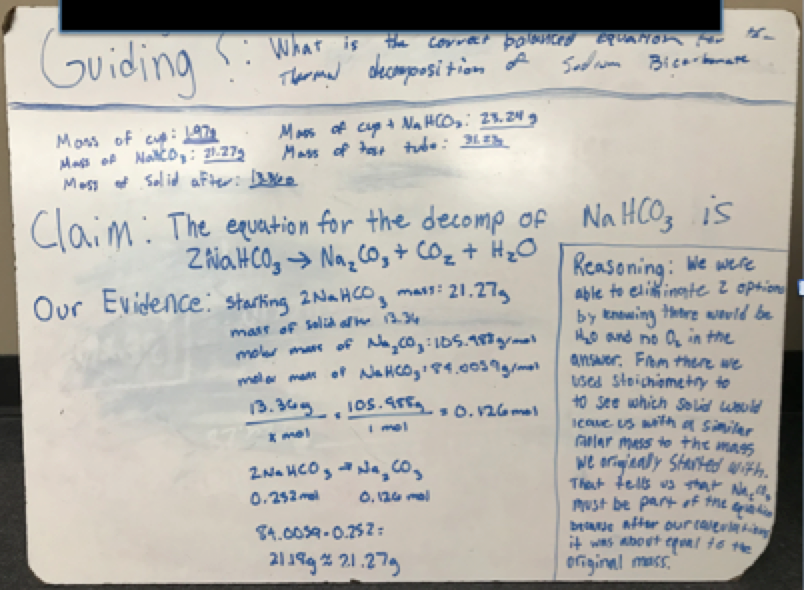 Guiding ?: What is the correct balanced equation for the
Thermal decomposition of Sodium Bicarbonate
Mass of cup: 1.97g Mass of cup + NaHCO3: 23.24 g
Mass of NaHCO3: 21.27g Mass of test tube: 31.23g
Mass of Solid after: 13.36g
Claim: The equation for the decomp of NaHCO3 is
2NaHCO3 → Na2CO3 + CO2 + H2O
Our Evidence: starting 2NaHCO3 mass: 21.27g
mass of solid after 13.36
molar mass of Na2CO3: 105.988g/mol
molar mass of NaHCO3: 84.0059g/mol
13.36g / x mol = 105.988g / 1 mol = 0.126 mol
2NaHCO3 → Na2CO3
0.252 mol 0.126 mol
84.0059 · 0.252 =
21.19g ≈ 21.27g
Reasoning: We were
able to eliminate 2 options
by knowing there would be
H2O and no O2 in the
answer. From there we
used stoichiometry to
to see which solid would
leave us with a similar
molar mass to the mass
we originally started with.
That tells us that Na2CO3
must be part of the equation
because after our calculations
it was about equal to the
original mass.